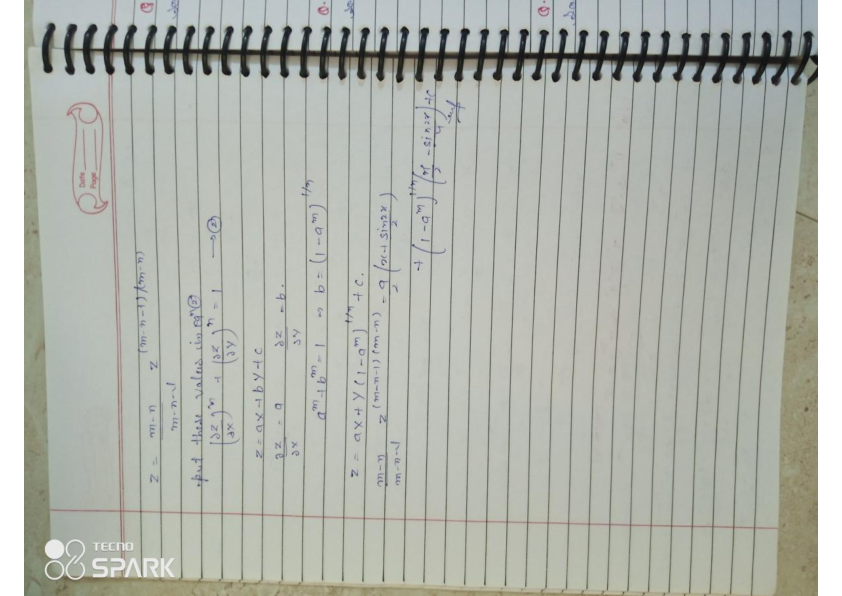 Date
Page
Z = m-n / m-n-1 z^(m-n-1)/(m-n)
put these values in eqn (2)
(∂Z/∂X)^m + (∂Z/∂Y)^n = 1 → (2)
Z = aX + bY + C
∂Z/∂X = a ∂Z/∂Y = b.
a^m + b^m = 1 ⇒ b = (1-a^m)^1/n
Z = aX + Y(1-a^m)^1/n + C.
m-n / m-n-1 z^(m-n-1)(m-n) = a/2 (x + sin2x/2)
+ (1-a^m)^1/n (x/2 - sin2x/4) + C
Q.
Q.
Q.
TECNO
SPARK